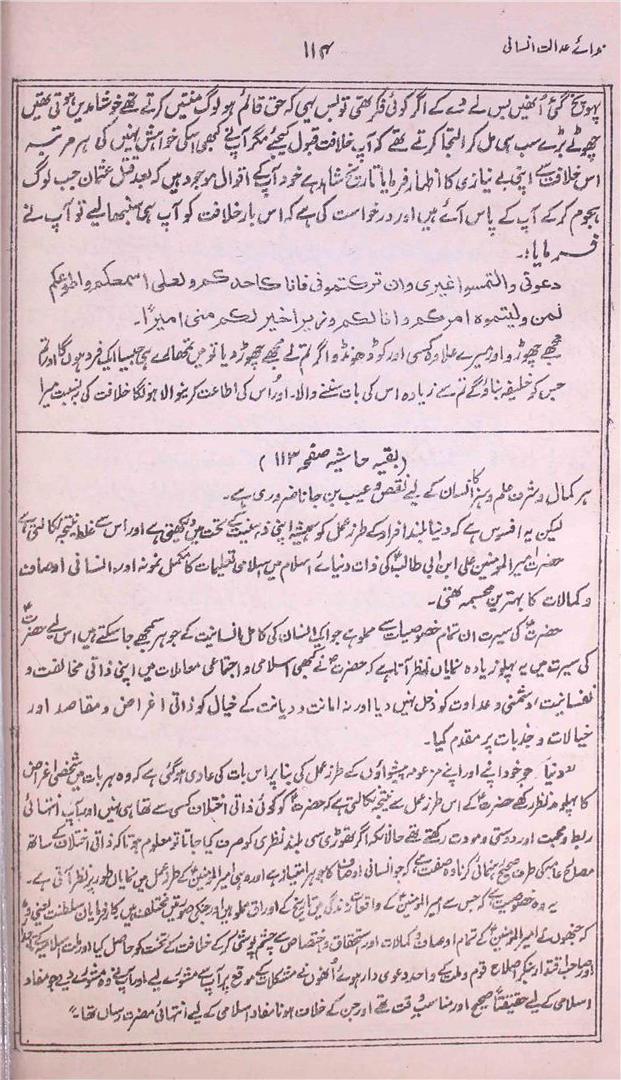 ندائے عدالت انسانی
۱۱۴
پہونچ گئی اُنھیں بس لے دے کے اگر کوئی فکر تھی تو بس یہی کہ حق قائم ہو لوگ منتیں کرتے تھے خوشامدیں ہوتی تھیں
چھوٹے بڑے سب ہی مل کر التجا کرتے تھے کہ آپ خلافت قبول کیجئے مگر آپ نے کبھی اسکی خواہش نہیں کی ہر مرتبہ
اس خلافت سے اپنی بے نیازی کا اظہار فرمایا تاریخ شاہد ہے خود آپ کے اقوال موجود ہیں کہ بعد قتل عثمان جب لوگ
ہجوم کر کے آپ کے پاس آئے ہیں اور درخواست کی ہے کہ اس بار خلافت کو آپ ہی سنبھالیے تو آپ نے
فرمایا:۔
دعونی والتمسوا غیری وان ترکتمونی فانا کاحدکم ولعلی اسمعکم واطوعکم
لمن ولیتموہ امرکم وانا لکم وزیرا خیر لکم منی امیرًا۔
مجھے چھوڑو اور میرے علاوہ کسی اور کو ڈھونڈو اگر تم نے مجھے چھوڑ دیا تو میں تمھارے ہی جیسا ایک فرد ہوں گا اور تم
جس کو خلیفہ بناؤ گے تم سے زیادہ اس کی بات سننے والا۔ اور اُس کی اطاعت کرنیوالا ہونگا خلافت کی بہ نسبت میرا
(بقیہ حاشیہ صفحہ ۱۱۳)
ہر کمال و شرف علم و ہنر کا انسان کے لیے نقص و عیب بن جانا ضروری ہے۔
لیکن یہ افسوس ہے کہ دنیا بلند افراد کے طرز عمل کو ہمیشہ اپنی ذہنیت کے تحت میں دیکھتی ہے اور اس سے غلط نتیجہ نکالتی ہے
حضرت امیر المومنین علی ابن ابی طالبؑ کی ذات دنیائے اسلام میں اسلامی تعلیمات کا مکمل نمونہ اور انسانی اوصاف
و کمالات کا بہترین مجسمہ تھی۔
حضرتؑ کی سیرت ان تمام خصوصیات سے مملو ہے جو ایک انسان کی کامل انسانیت کے جوہر سمجھے جا سکتے ہیں اس لیے حضرتؑ
کی سیرت میں یہ پہلو زیادہ نمایاں نظر آتا ہے کہ حضرتؑ نے کبھی اسلامی و اجتماعی معاملات میں اپنی ذاتی مخالفت و
نفسانیت، دشمنی و عداوت کو دخل نہیں دیا اور نہ امانت و دیانت کے خیال کو ذاتی اغراض و مقاصد اور
خیالات و جذبات پر مقدم کیا۔
دنیا جو خود اپنے اور اپنے مزعومہ پیشواؤں کے طرز عمل کی بنا پر اس بات کی عادی ہو گئی ہے کہ وہ ہر بات میں شخصی اغراض
کا پہلو مد نظر رکھے حضرتؑ کے اس طرز عمل سے نتیجہ نکالتی ہے کہ حضرتؑ کو کوئی ذاتی اختلاف کسی سے تھا ہی نہیں اور آپ انتہائی
ربط و محبت اور دوستی و مودت رکھتے تھے حالانکہ اگر تھوڑی سی بلند نظری کو صرف کیا جاتا تو معلوم ہوتا کہ ذاتی اختلاف کے ساتھ
مصالح عامہ کی طرف صحیح رہنمائی کرنا وہ صفت ہے کہ جو انسانی اوصاف کا جوہر امتیاز ہے اور وہی امیر المومنینؑ کے طرز عمل میں نمایاں طور پر نظر آتی ہے۔
یہ وہ خصوصیت ہے کہ جس سے امیر المومنینؑ کے واقعات زندگی میں تاریخ کے اوراق مملو ہیں اور جنکی صورتیں مختلف ہیں کار فرمایان سلطنت یعنی
کہ جنھوں نے امیر المومنینؑ کے تمام اوصاف و کمالات اور استحقاق و اختصاص سے چشم پوشی کر کے خلافت کے تخت کو حاصل کیا اور ملت اسلامیہ کے
اور صاحب اقتدار بنکر اصلاح قوم و ملت کے واحد دعوی دار ہوئے اُنھوں نے مشکلات کے موقع پر آپ سے مشورے لیے اور آپ نے وہ مشورے دیے جو مفاد
اسلامی کے لیے حقیقتًا صحیح اور مناسب وقت تھے اور جن کے خلاف ہونا مفاد اسلامی کے لیے انتہائی مضرت رساں تھا۔"